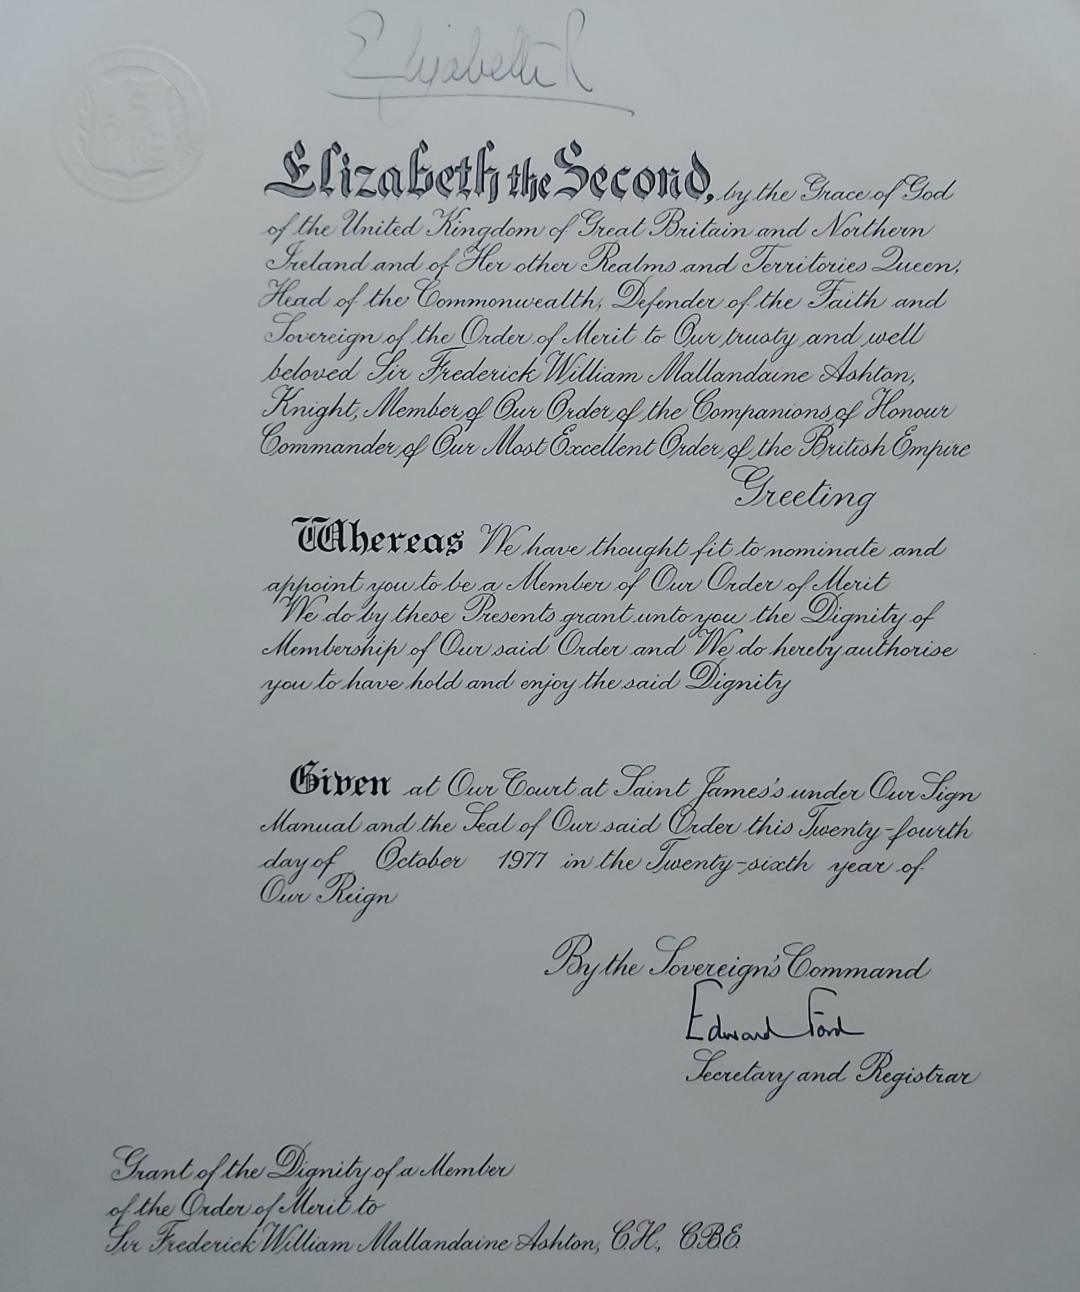 Elizabeth R
Elizabeth the Second, by the Grace of God
of the United Kingdom of Great Britain and Northern
Ireland and of Her other Realms and Territories Queen,
Head of the Commonwealth, Defender of the Faith and
Sovereign of the Order of Merit to Our trusty and well
beloved Sir Frederick William Mallandaine Ashton,
Knight, Member of Our Order of the Companions of Honour
Commander of Our Most Excellent Order of the British Empire
Greeting
Whereas We have thought fit to nominate and
appoint you to be a Member of Our Order of Merit
We do by these Presents grant unto you the Dignity of
Membership of Our said Order and We do hereby authorise
you to have hold and enjoy the said Dignity
Given at Our Court at Saint James's under Our Sign
Manual and the Seal of Our said Order this Twenty-fourth
day of October 1977 in the Twenty-sixth year of
Our Reign
By the Sovereign's Command
Edward Ford
Secretary and Registrar
Grant of the Dignity of a Member
of the Order of Merit to
Sir Frederick William Mallandaine Ashton, C.H., CBE.